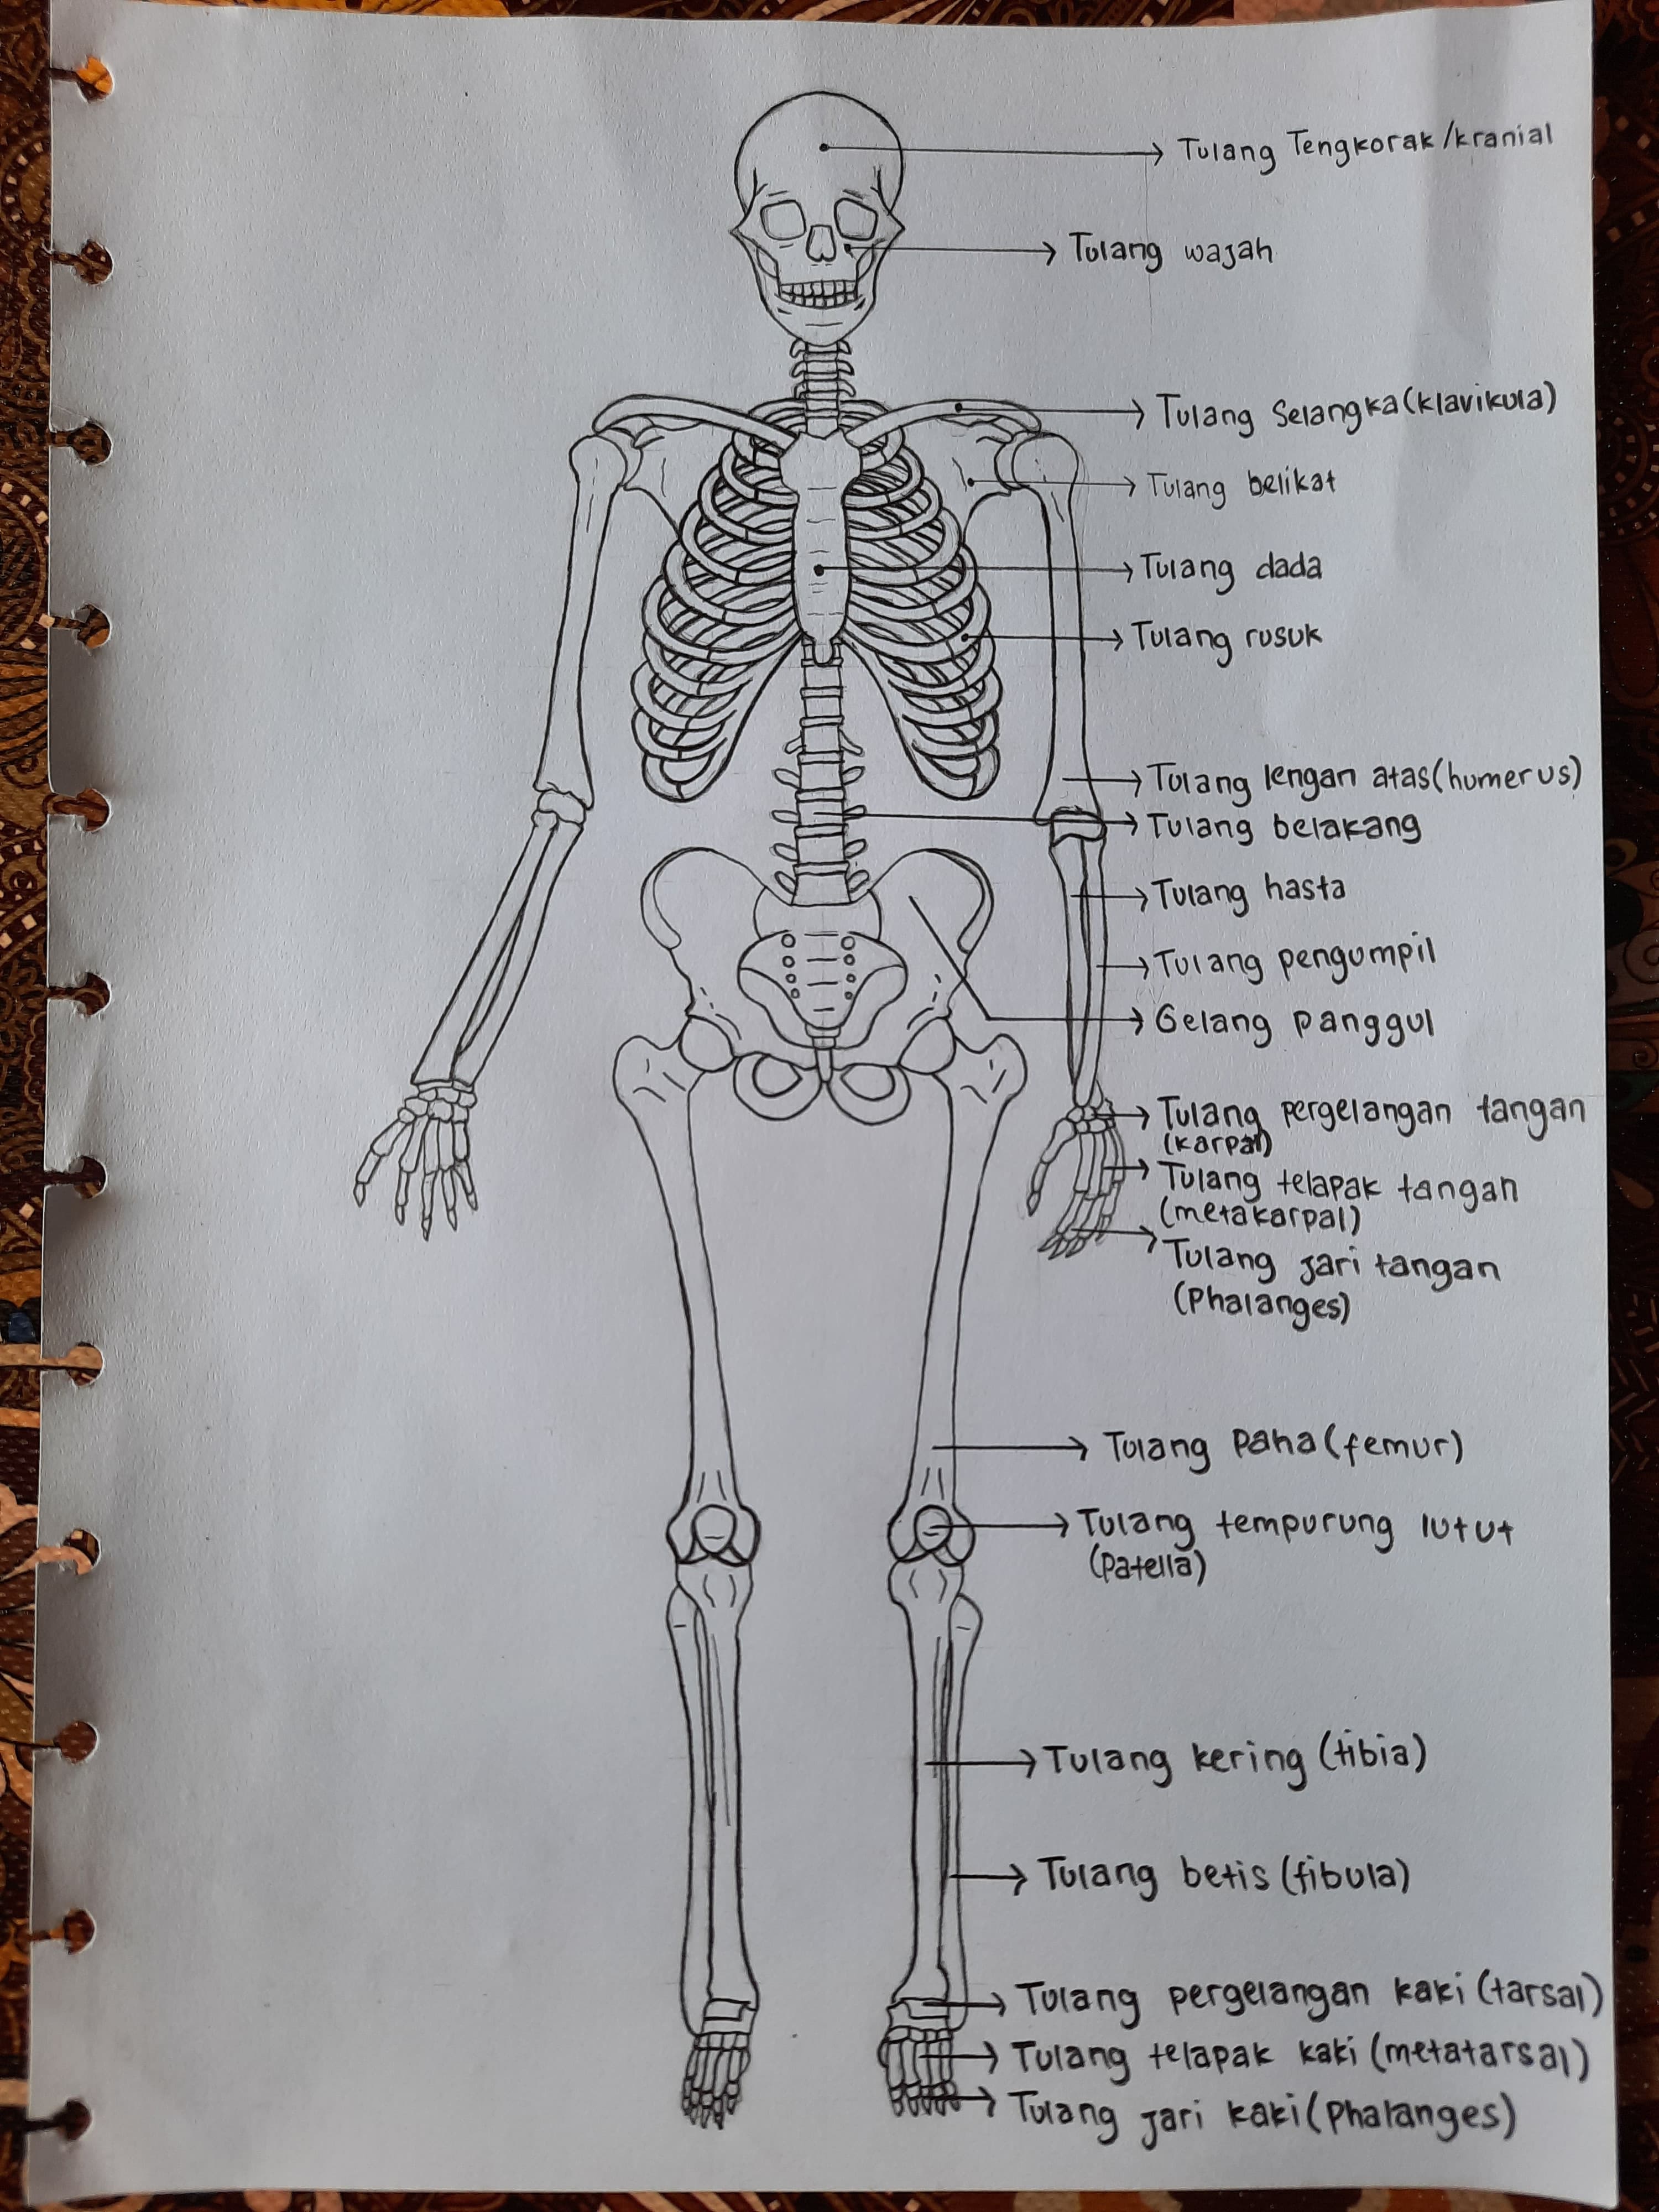 Tulang Tengkorak/kranial
Tulang wajah
Tulang Selangka(klavikula)
Tulang belikat
Tulang dada
Tulang rusuk
Tulang lengan atas(humerus)
Tulang belakang
Tulang hasta
Tulang pengumpil
Gelang panggul
Tulang pergelangan tangan
(karpal)
Tulang telapak tangan
(metakarpal)
Tulang jari tangan
(Phalanges)
Tulang Paha(femur)
Tulang tempurung lutut
(Patella)
Tulang kering (tibia)
Tulang betis (fibula)
Tulang pergelangan kaki (tarsal)
Tulang telapak kaki (metatarsal)
Tulang jari kaki (Phalanges)